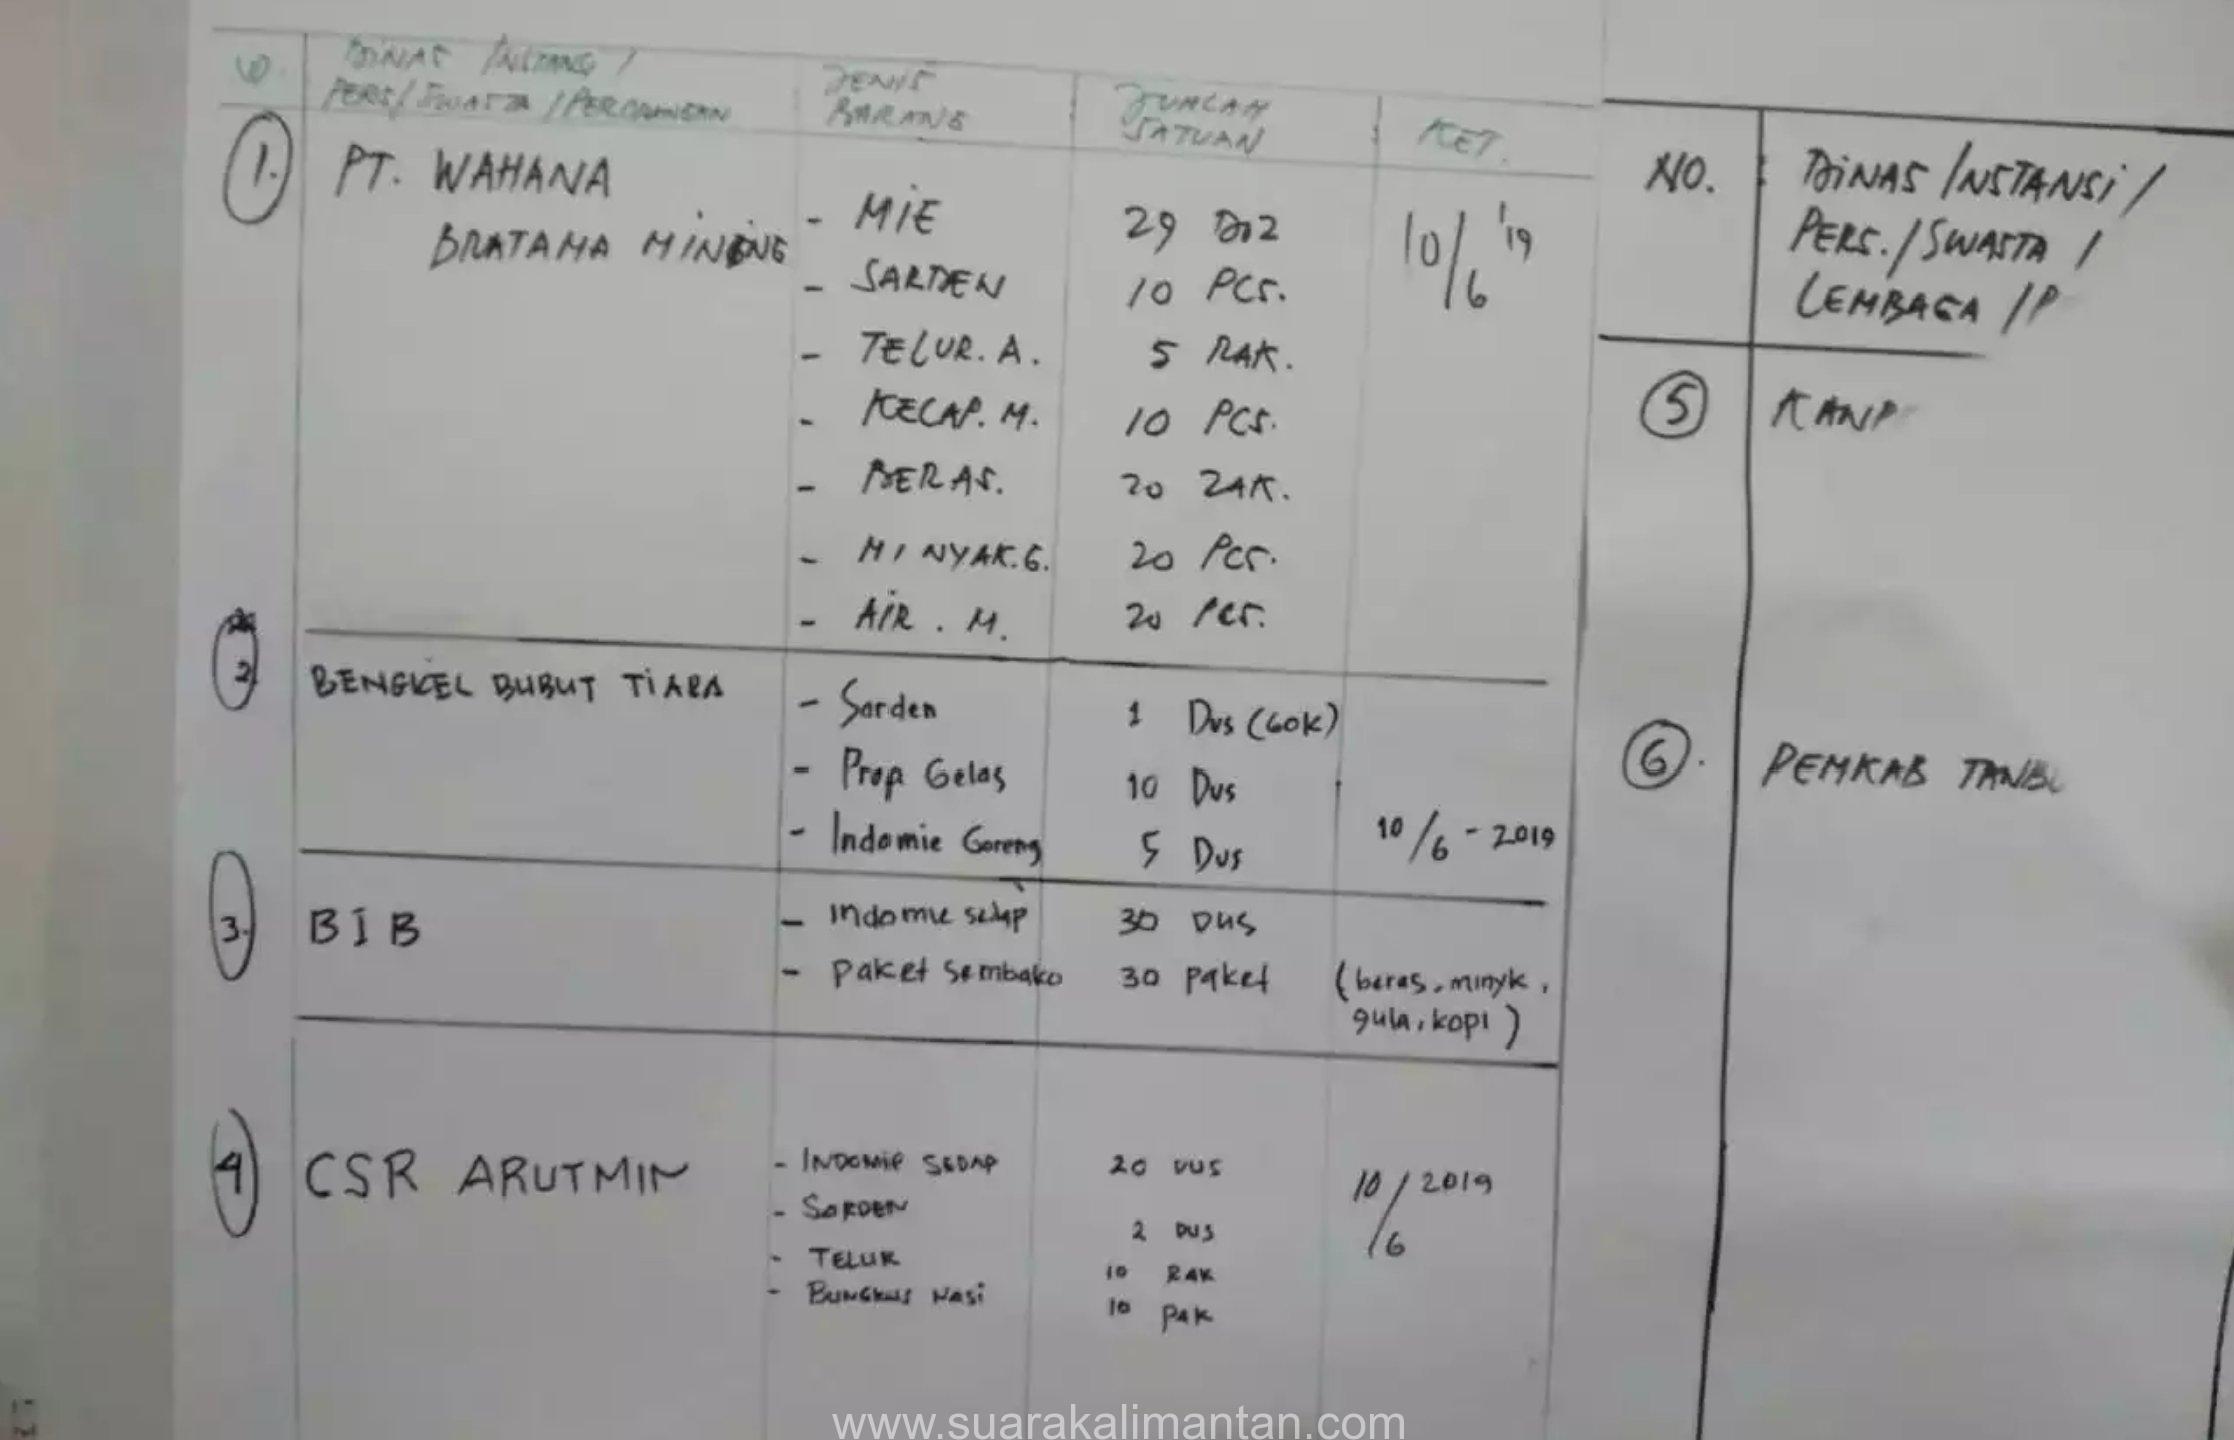 DINAS / INSTANSI /
PERS / SWASTA / PERORANGAN
JENIS
BARANG
JUMLAH
SATUAN
KET.
1. PT. WAHANA
BRATAMA MINING
- MIE 29 DOZ 10/6 '19
- SARDEN 10 PCS.
- TELUR. A. 5 RAK.
- KECAP. M. 10 PCS.
- BERAS. 20 ZAK.
- MINYAK. G. 20 PCS.
- AIR. M. 20 PCS.
2 BENGKEL BUBUT TIARA
- Sarden 1 Dus (60K)
- Prop Gelas 10 Dus
- Indomie Goreng 5 Dus 10/6 - 2019
3. BIB
- Indomie sedap 30 DUS
- Paket sembako 30 paket (beras, minyk,
gula, kopi)
4 CSR ARUTMIN
- INDOMIE SEDAP 20 DUS 10/6 2019
- SARDEN 2 DUS
- TELUR 10 RAK
- BUNGKUS NASI 10 PAK
NO. DINAS / INSTANSI /
PERS. / SWASTA /
LEMBAGA / P
5 KANP
6. PEMKAB TANBU
www.suarakalimantan.com